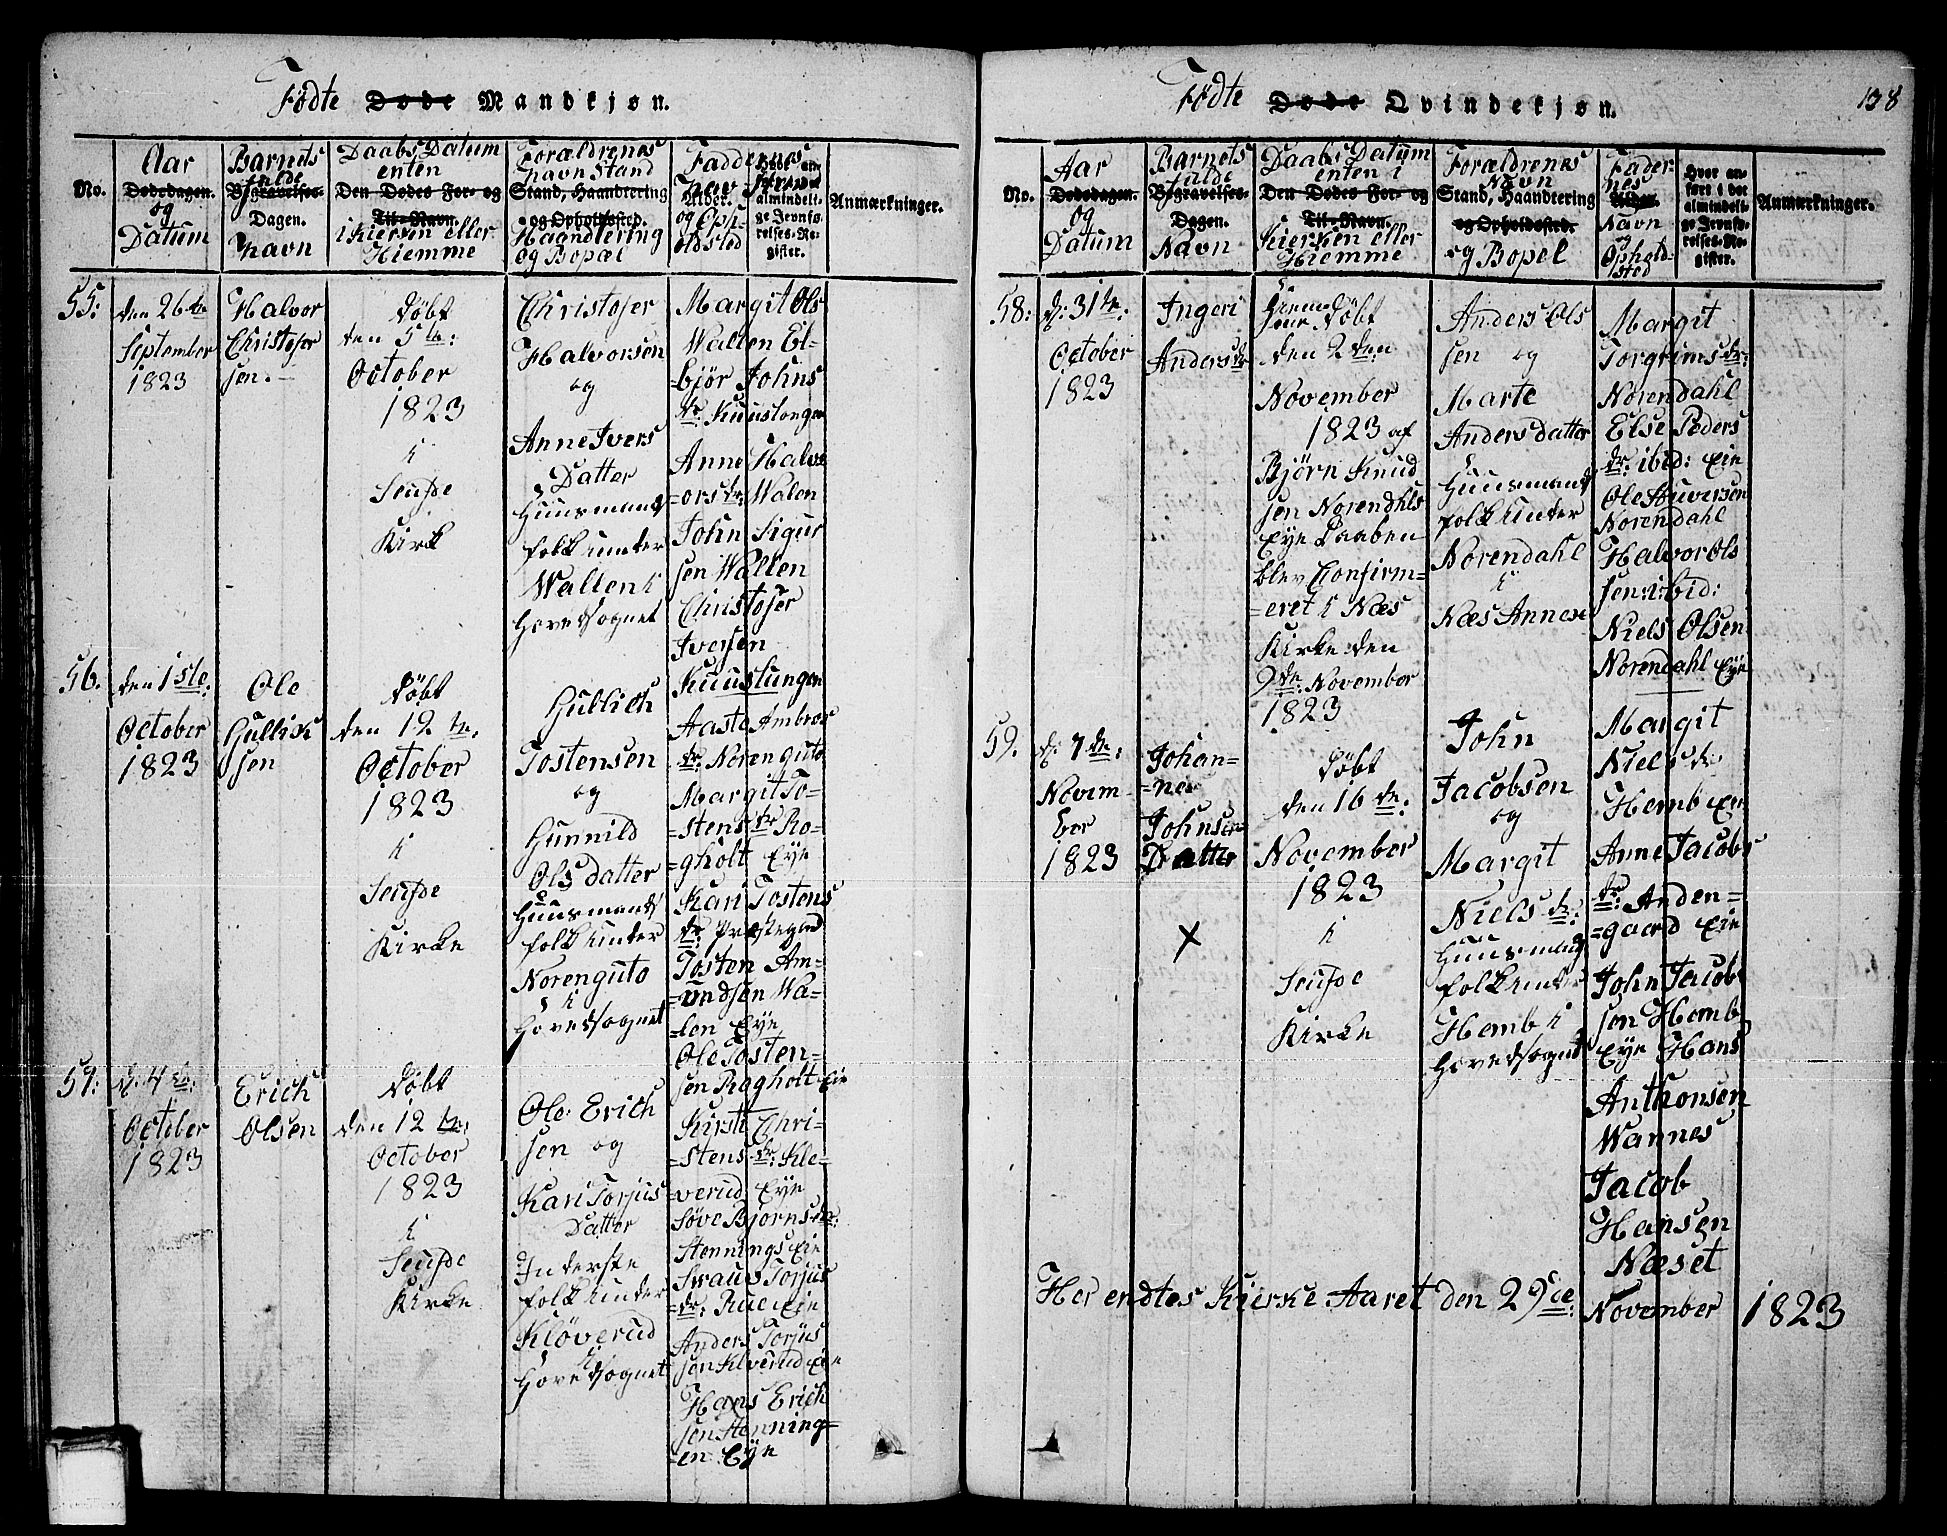 Fødte Døde Mandkjøn.
No.
Aar
Dødedagen.
og
Datum
Barnets
fulde
Begravelses-
Dagen.
Navn
Daabs Datum
enten
Den Dødes For- og
Til-Navn.
i Kierken eller
Hiemme
Forældrenes
Navn Stand
Stand, Haandtering
og Opholdssted.
Haandtering
og Bopæl
Faddernes
Navn
Alder.
og Oph-
oldsted
Hvor an-
ført i det
almindeli-
ge Jevnfø-
relses-Re-
gister.
Anmærkninger.
55:
den 26 de
September
1823
Halvor
Christofer
sen.
Døbt
den 5 te:
October
1823
i
Seufde
Kirk
Christofer
Halvorsen
og
Anne Ivers
Datter
Huusmands
folk under
Wallen i
Hovedsognet
Margit Ols
Wallen El-
=bjør Johns
dr. Kuuslongen
Anne Halv
=ors dr. Walen
John Sigur
sen Wallen
Christofer
Iversen
Kuuslungen
56.
den 1 ste:
October
1823
Ole
Gullik
sen
Døbt
den 12 te.
October
1823
i
Seufde
Kirke
Gullich
Tostensen
og
Gunnild
Ols datter
Huusmands
folk under
Norenguto
i
Hovedsognet
Aaste Ambros
dr. Norenguto
Margit To-
=stens dr Ro-
=gholt Eye
Kari Tostens
dr: Præstegrd
Tosten Am-
=undsen Wa-
=len Eye
Ole Tosten=
sen Ragholt Eie
57:
d: 4 de:
October
1823
Erich
Olsen
Døbt
den 12 te:
October
1823
i
Seufde
Kirke
Ole Erich
sen og
Kari Torjus
Datter
Inderste
folk under
Kløverud
i
Hovedsognet
Kirsti Chri-
=stens dr. Kle-
=verud Eye
Søve Bjørns dr:
Stennings Eie
Swaus Torjus
=dr: Rue Eie
Anders Torjus
sen Klverud Eie
Hans Erich
sen Stenning=
=en Eye
Fødte Døde Qvindekjøn.
138
No.
Aar
Dødedagen.
og
Datum
Barnets
fulde
Begravelses-
Dagen.
Navn
Daabs Datum
enten i
Den Dødes For- og
Til-Navn.
Kierken eller
Hiemme
Forældrenes
Navn
Stand, Haandtering
og Opholdssted.
og Bopel
Fader-
nes
Alder.
Navn
og
Ophold-
sted
Hvor an-
ført i det
almindeli-
ge Jevnfø-
relses-Re-
gister.
Anmærkninger.
58:
d: 31 te:
October
1823
Ingeri
Anders dr
Hiem
Døbt
den 2 den
November
1823 af
Bjørn Knud
sen Norendhls
Eye Daaben
blev Confirm=
=eret i Næs
Kirke den
9 de: November
1823
Anders Ols
sen og
Marte
Anders datter
Huusmands
folk under
Norendahl
i
Næs Annex
Margit
Torgrims dr:
Norendahl
Else Peders
dr: ibid: Eie
Ole Huversen
Norendahl
Halvor Ols
sen: ibid:
Niels Olsen
Norendahl Eye
59.
d: 7 de:
Novem
ber
1823
Johan=
=ne
Johns
Datter
X
Døbt
den 16 de:
November
1823
i
Seufde
Kirke
John
Jacobsen
og
Margit
Niels dr:
Huusmands
folk under
Hemb i
Hovedsognet
Margit
Niels dr
Hemb Eie
Anne Jacobs
dr: Anden=
=gaard Eie
John Jacob
sen Hemb
Eye Hans
Anthonsen
Wannes
Jacob
Hansen
Næset
Her endtes Kierke Aaret den 29 de: November 1823